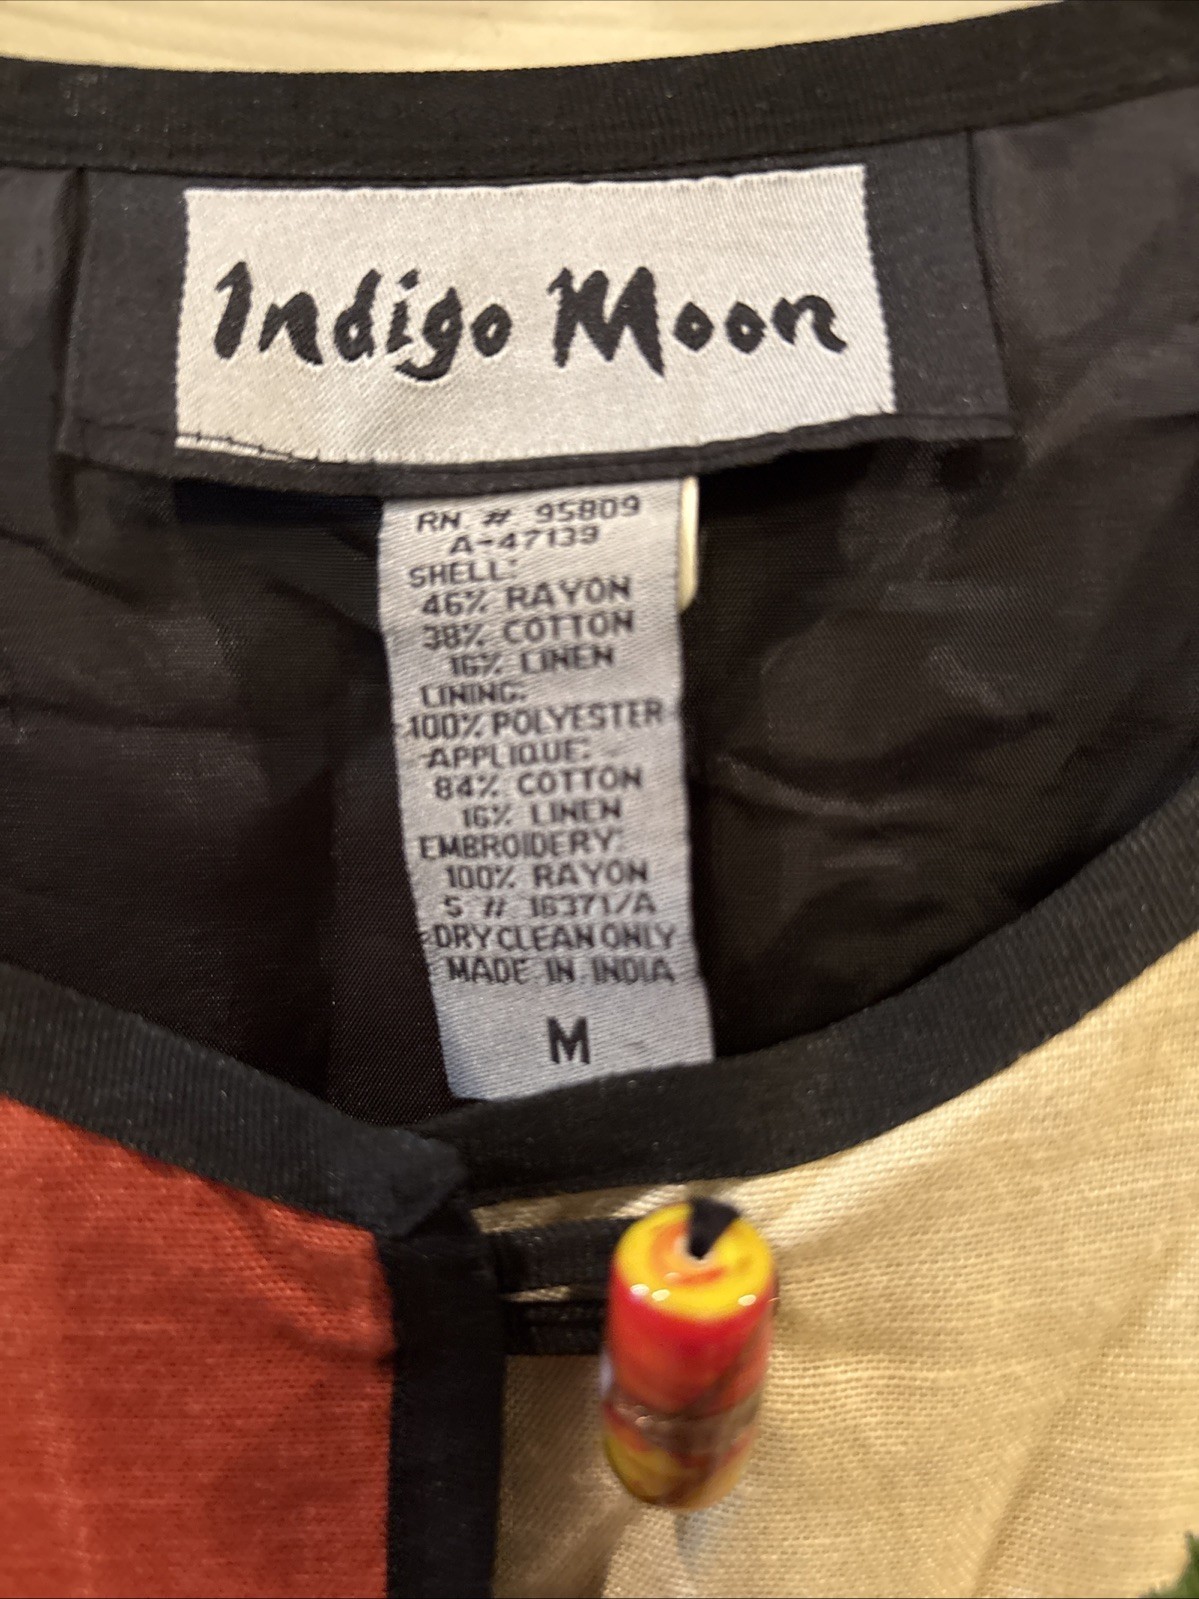 Indigo Moon
RN. # 95809
A-47139
SHELL:
46% RAYON
38% COTTON
16% LINEN
LINING:
100% POLYESTER
APPLIQUE:
84% COTTON
16% LINEN
EMBROIDERY:
100% RAYON
S # 16371/A
DRY CLEAN ONLY
MADE IN INDIA
M